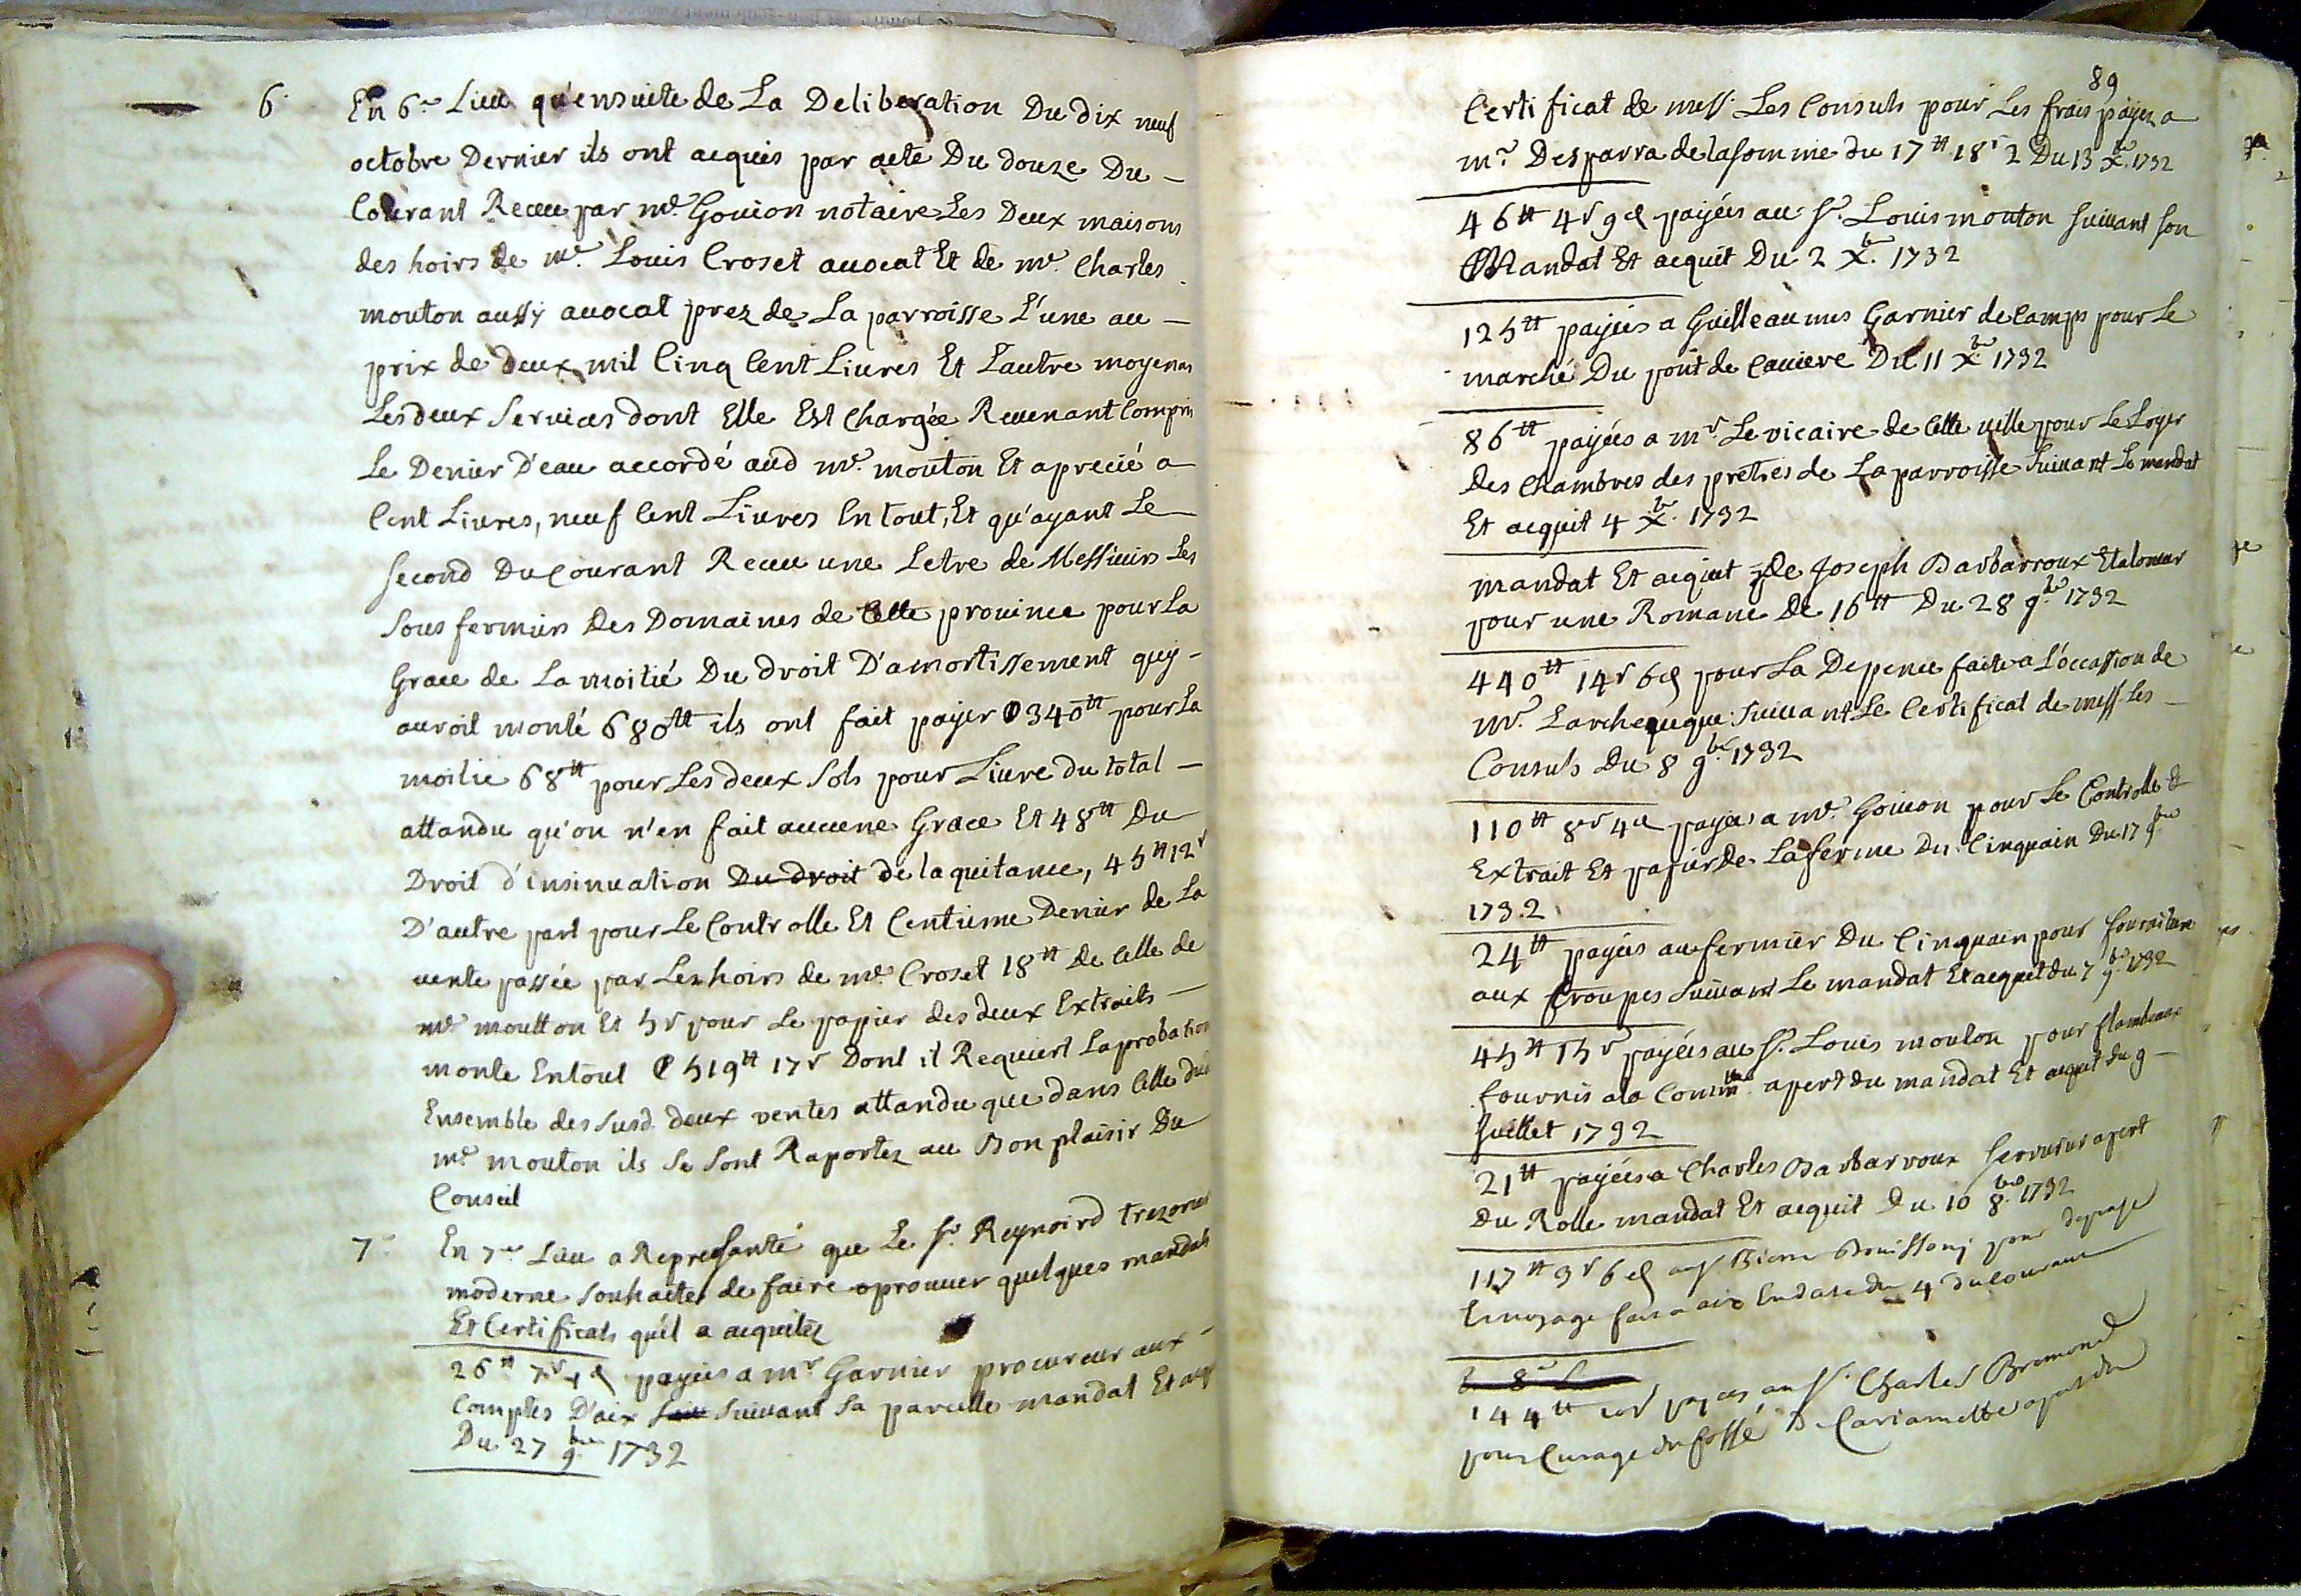 6. En 6.e Lieu qu'ensuite de La Deliberation Du dix neuf
octobre Dernier ils ont acquis par acte Du douze Du –
Courant Receu par me. Gouion notaire Les Deux maisons
des hoirs de me. Louis Croset auocat Et de me. Charles
mouton aussy auocat prez de La parroisse L'une au –
prix de deux mil Cinq Cent Liures Et L'autre moyenan
Les deux Seruices dont Elle Est Chargée Reuenant Compris
Le Denier D'eau accordé aud me. mouton Et aprecié a
Cent Liures, neuf Cent Liures En tout, Et qu'ayant Le
Second Du Courant Receu une Letre de Messieurs Les
Sous fermiers Des Domaines de Cette prouince pour La
Grace de La moitié Du Droit D'amortissement quy –
auroit monté 680tt ils ont fait payer 340tt pour La
moitie 68tt pour Les deux Sols pour Liure du total –
attandu qu'on n'en fait aucune Grace Et 48tt Du
Droit d'insinuation Du droit de la quitance, 45tt 12s
D'autre part pour Le Controlle Et Centieme Denier de La
uente passée par Les hoirs de me. Croset 18tt De Celle de
me moutton Et 5s pour Le papier des deux Extraits –
monte En tout 519tt 17s Dont il Requiert Laprobation
Ensemble des Susd. deux ventes attandu que dans Celle dud
me mouton ils Se Sont Raportez au Bon plaisir Du
Conseil
7. En 7.e Lieu a Represanté que Le Sr. Reynoird trezorier
moderne Souhaite de faire aprouuer quelques mandats
Et Certificats qu'il a acquitez
26tt 7s payées a mr Garnier procureur aux –
Comptes D'aix Suiuant Sa parcelle mandat Et acq
Du 27 9.bre 1732
89
Certificat de mess. Les Consuls pour Les frais payez a
mr. Desparra de la Somme du 17tt 18s 2 Du 13 X.bre 1732
46tt 4s 9d payées au Sr. Louis mouton Suiuant Son
Mandat Et acquit Du 2 X.bre 1732
125tt payées a Guilleaumes Garnier de Camps pour Le
marché Du pont de Cauiere Du 11 X.bre 1732
86tt payées a mr. Le vicaire de Cette ville pour Le Loyer
Des Chambres des pretres de La parroisse Suiuant Le mandat
Et acquit 4 X.bre 1732
mandat Et acquit de Joseph Barbarroux Etaloneur
pour une Romane De 16tt Du 28 9.bre 1732
440tt 14s 6d pour La Depence faite a L'occassion de
Mr. L'archeueque Suiuant Le Certificat de mess. Les –
Consuls Du 8 9.bre 1732
110tt 8s 4d payées a me. Gouion pour Le Controlle &
Extrait Et papier De La ferme Du Cinquain Du 17 9.bre
1732
24tt payées au fermier Du Cinquain pour fourniture
aux troupes Suiuant Le mandat Et acquit du 7 9.bre 1732
45tt 15s payées au Sr. Louis mouton pour flambeaux
fournis a la Comm.té apert du mandat Et acquit du 9 –
Juillet 1732
21tt payées a Charles Barbarroux Serrurier apert
Du Rolle mandat Et acquit Du 10 8.bre 1732
117tt 3s 6d au Sr Pierre Bouissony pour
En voyage fait a aix En date du 4 du Courant
144tt payées au Sr. Charles Bremond
pour Curage du fossé De Cariamette apert du